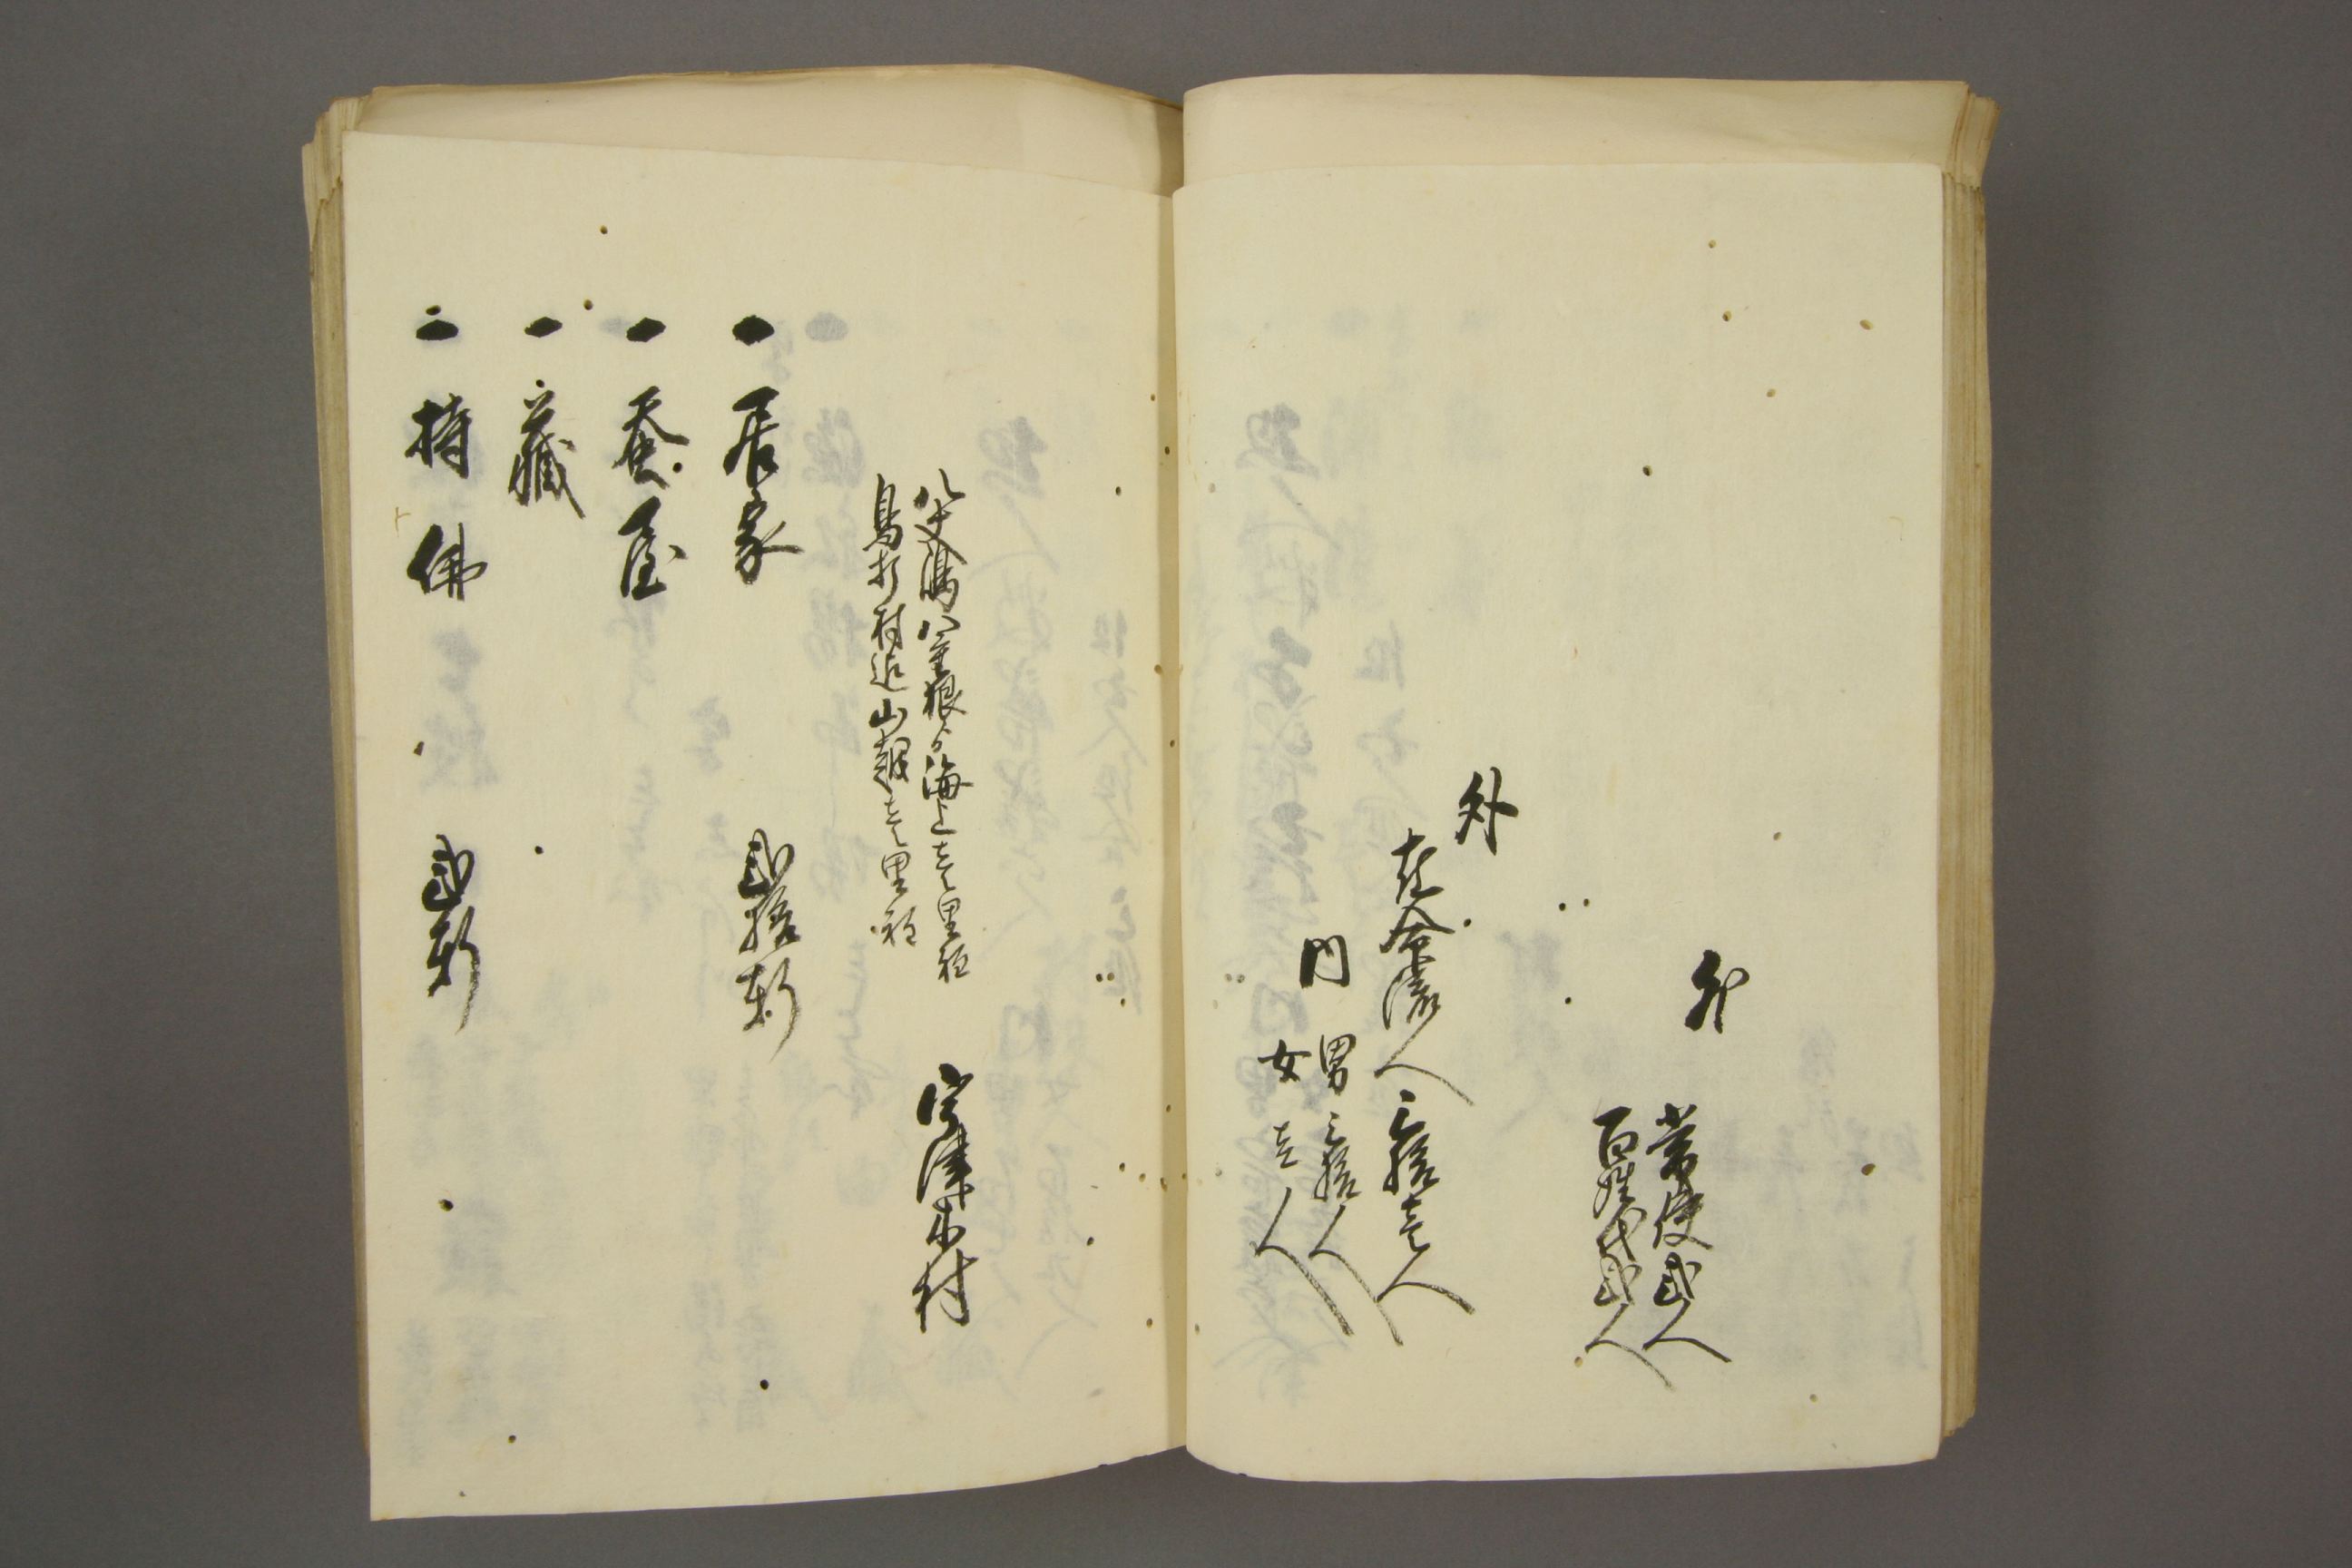 外
常使弐人
百姓代弐人
外
在命流人三拾壱人
内
男三拾人
女壱人
八丈嶋八重根ゟ海上壱里程
鳥打村迄山越壱里程
宇津木村
一居家 弐拾軒
一蚕屋
一蔵
一持佛 弐軒